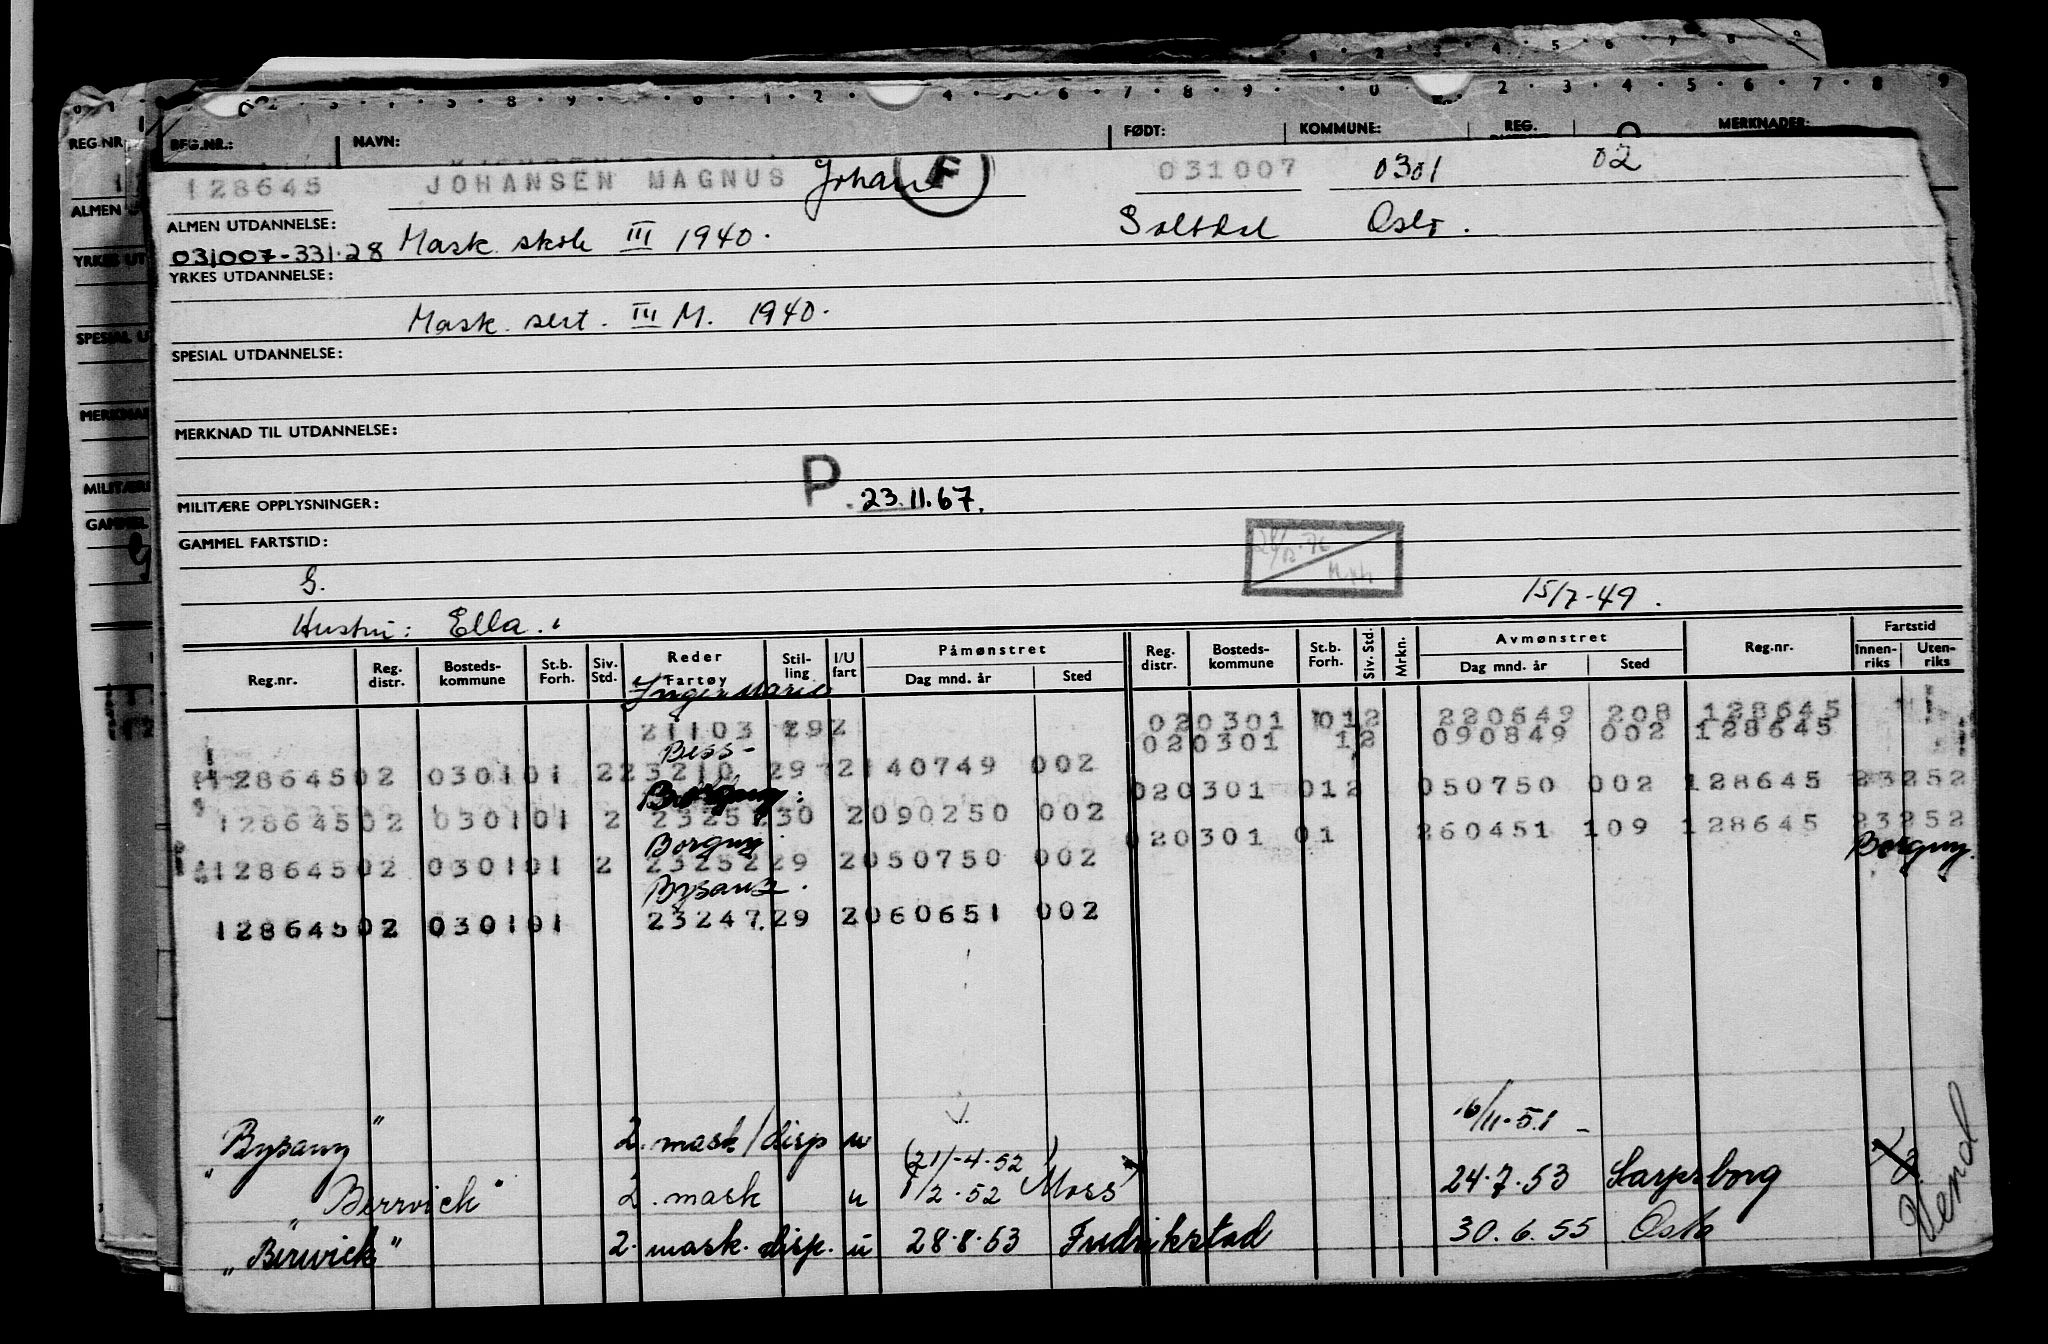 REG.NR.: NAVN: FØDT: KOMMUNE: REG. MERKNADER:
128645 JOHANSEN MAGNUS Johan F 031007 0301 02
ALMEN UTDANNELSE:
031007-331.28 Mask. skole III 1940. Saltdal Oslo.
YRKES UTDANNELSE:
Mask. sert. III M. 1940.
SPESIAL UTDANNELSE:
MERKNAD TIL UTDANNELSE:
P. 23.11.67.
MILITÆRE OPPLYSNINGER:
GAMMEL FARTSTID:
G.
15/7-49.
Hustru: Ella.
Reg.nr. Reg. distr. Bosteds- kommune St.b. Forh. Siv. Std. Reder Fartøy Stil- ling I/U fart Påmønstret Dag mnd. år Sted Reg. distr. Bosteds- kommune St.b. Forh. Siv. Std. Mrkn. Avmønstret Dag mnd. år Sted Reg.nr. Fartstid Innen- riks Uten- riks
Inger Marie
21103 292 020301 012 220649 208 128645
Bess- 020301 12 090849 002 128645
128645 02 0301 01 2 23210 29 2 140749 002
Borgny: 020301 012 050750 002 128645 23252
128645 02 0301 01 2 23252 30 2 090250 002
Borgny 020301 01 260451 109 128645 23252
128645 02 0301 01 2 23252 29 2 050750 002 Borgny.
Bysanz.
128645 02 0301 01 23247. 29 2 060651 002
16/11-51
"Bysanz" 2. mask/disp u
(21/-4-52)
"Berrvick" 2. mask u 1/2-52 Moss 24.7.53 Sarpsborg
"Berwick" 2. mask. disp. u 28.8.53 Fredrikstad 30.6.55 Oslo
Vend